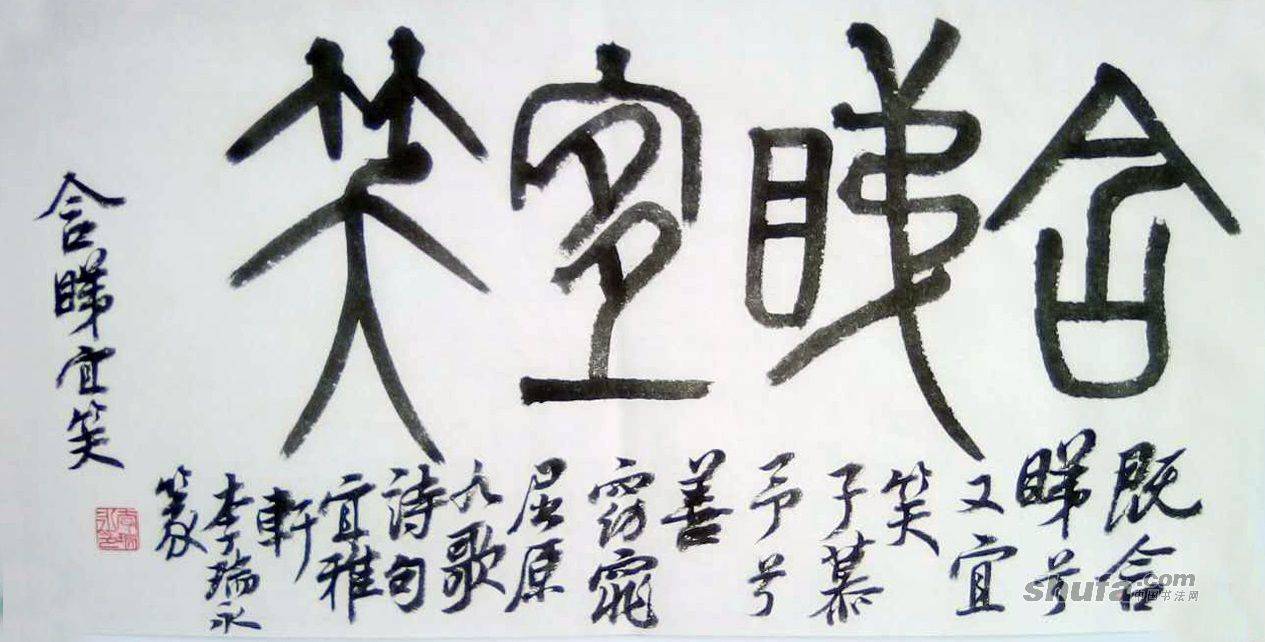 含睇宜笑
既含
睇兮
又宜
笑
子慕
予兮
善
窈窕
屈原
九歌
诗句
宜雅
軒
李瑞永
篆
含睇宜笑
shufa.com
中国书法网